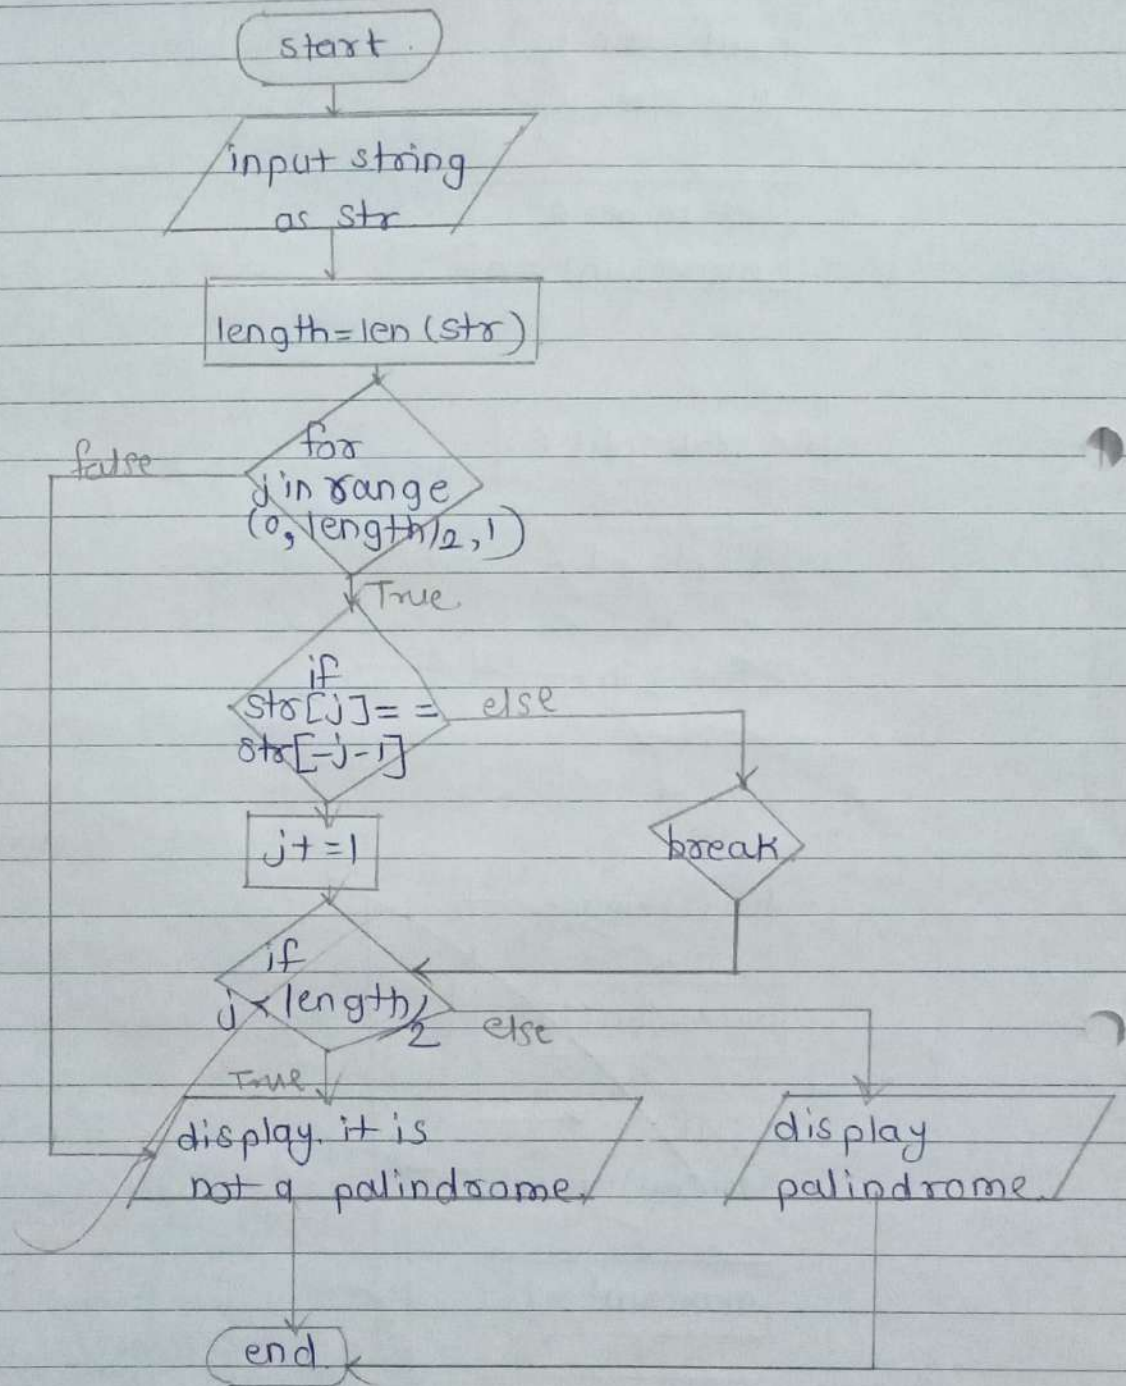 start
input string
as str
length=len(str)
for
j in range
(0, length/2, 1)
false
True
if
str[j]==
str[-j-1]
else
j+=1
break
if
j<length/2
else
True
display. it is
not a palindrome.
display
palindrome.
end